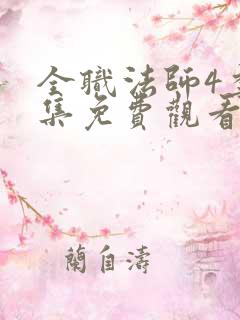 全職法師4
集免費觀看
蘭自濤